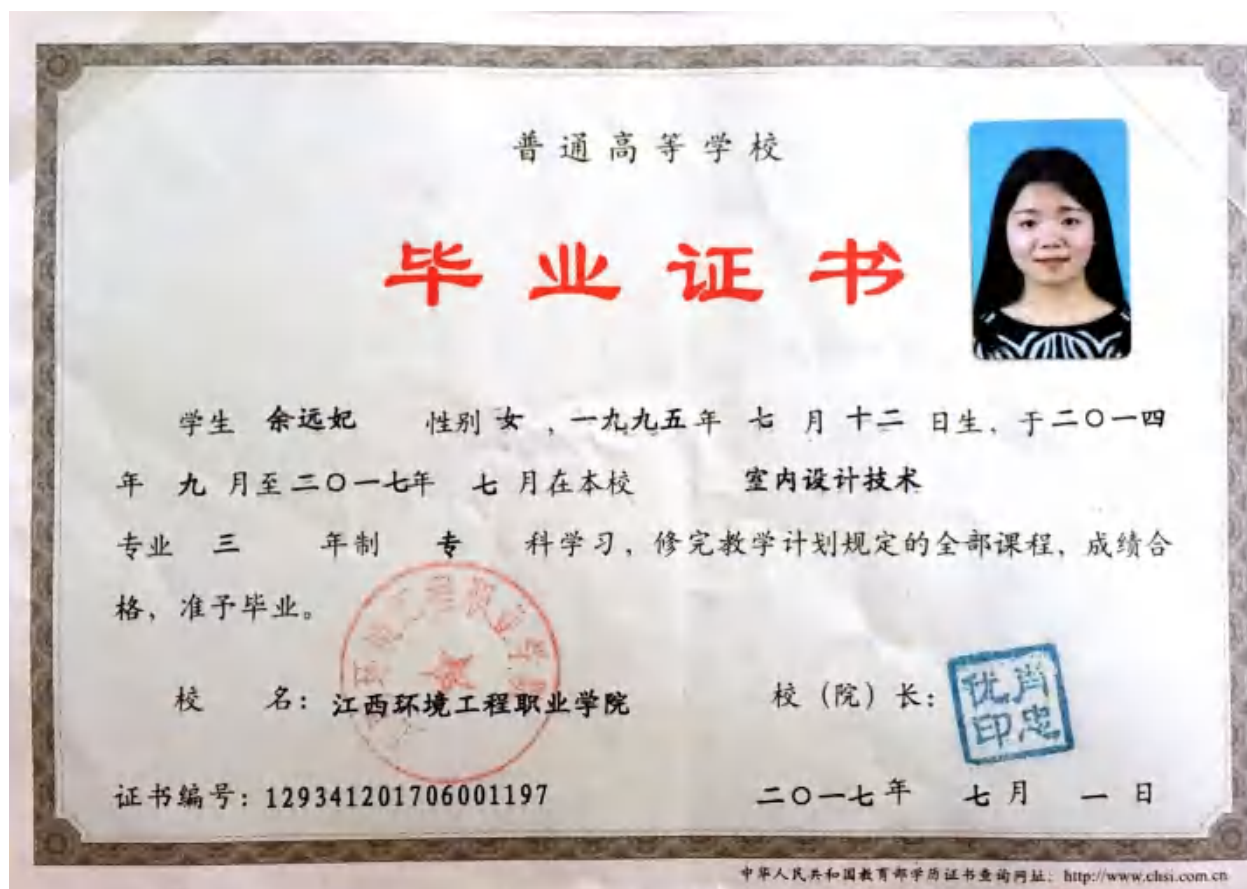 普通高等学校
毕业证书
学生 余远妃 性别 女 ，一九九五年 七 月 十二 日生，于二〇一四
年 九 月至二〇一七年 七 月在本校 室内设计技术
专业 三 年制 专 科学习，修完教学计划规定的全部课程，成绩合
格，准予毕业。
校 名：江西环境工程职业学院
校（院）长：
肖忠优印
证书编号：129341201706001197
二〇一七年 七 月 一 日
中华人民共和国教育部学历证书查询网址：http://www.chsi.com.cn